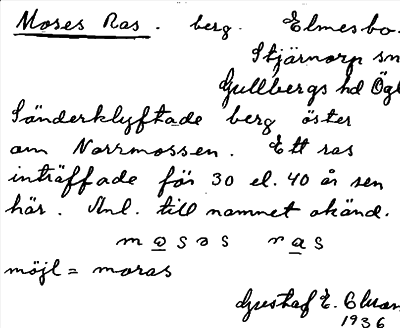 Moses Ras. berg. Elmesbo.
Stjärnorp sn
Gullbergs hd Ögl
Sönderklyftade berg öster
om Norrmossen. Ett ras
inträffade för 30 el. 40 år sen
här. Anl. till namnet okänd.
mosas ras
möjl = moras
Gustaf E.
1936